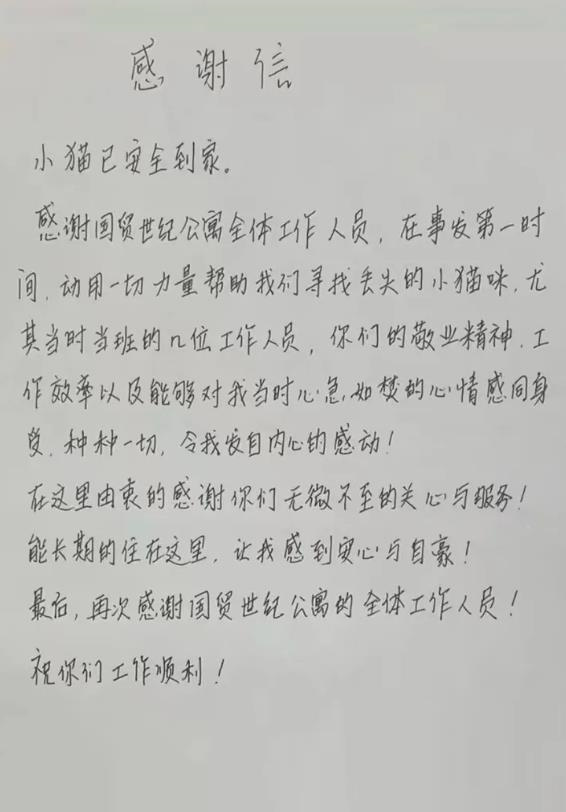 感谢信
小猫已安全到家。
感谢国贸世纪公寓全体工作人员，在事发第一时
间，动用一切力量帮助我们寻找丢失的小猫咪，尤
其当时当班的几位工作人员，你们的敬业精神、工
作效率以及能够对我当时心急如焚的心情感同身
受，种种一切，令我发自内心的感动！
在这里由衷的感谢你们无微不至的关心与服务！
能长期的住在这里，让我感到安心与自豪！
最后，再次感谢国贸世纪公寓的全体工作人员！
祝你们工作顺利！